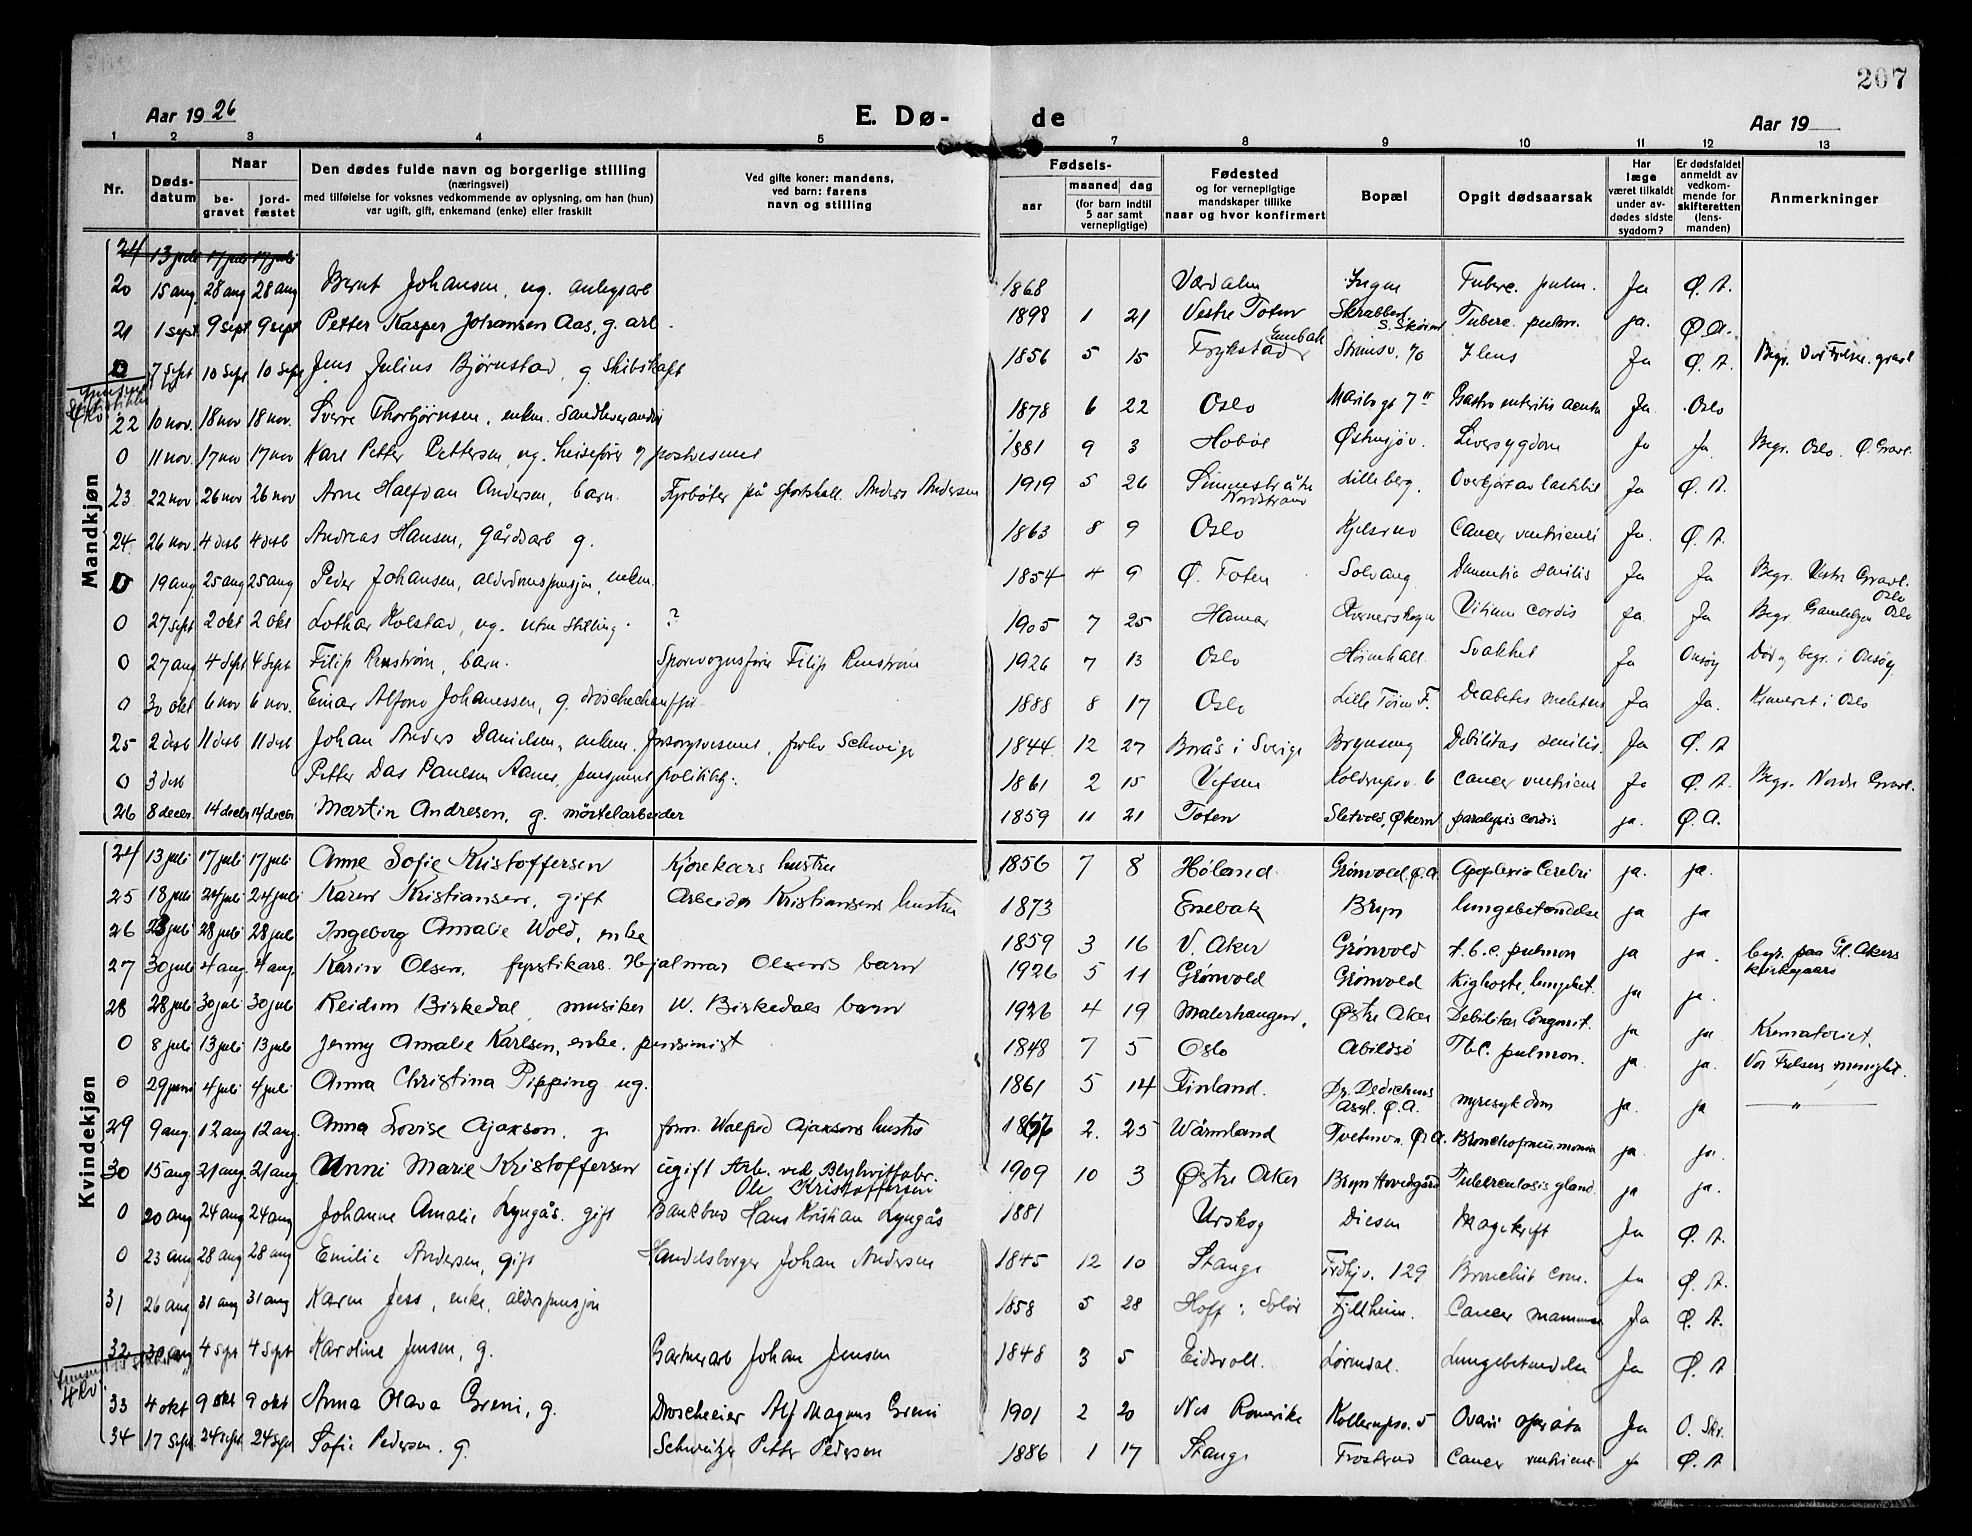 207
Aar 1926 E. Dø- de Aar 19
1 2 3 4 5 7 8 9 10 11 12 13
Nr. Døds-datum Naar be-gravet jord-fæstet Den dødes fulde navn og borgerlige stilling (næringsvei) med tilføielse for voksnes vedkommende av oplysning, om han (hun) var ugift, gift, enkemand (enke) eller fraskilt Ved gifte koner: mandens, ved barn: farens navn og stilling Fødsels- aar maaned dag (for barn indtil 5 aar samt vernepligtige) Fødested og for vernepligtige mandskaper tillike naar og hvor konfirmert Bopæl Opgit dødsaarsak Har læge været tilkaldt under av-dødes sidste sygdom? Er dødsfaldet anmeldt av vedkom-mende for skifteretten (lens-manden) Anmerkninger
Mandkjøn
24 13 juli 17 juli 17 juli
20 15 aug. 28 aug 28 aug Bernt Johansen, ug. anlegsarb 1868 Værdalen Ja Ø. A.
21 1 sept 9 sept 9 sept Petter Kasper Johansen Aas, g. arb. 1898 1 21 Vestre Toten Tuberc. pulm. ja. Ø.A.
0 7 sept 10 sept 10 sept Jens Julius Bjørnstad, g. 1856 5 15 Ja Ø. A. Begr. Vor Frelser. gravl
22 10 nov. 18 nov 18 nov. Sverre Thorbjørnsen, enkem. 1878 6 22 Oslo Gastro enteritis acuta Ja Oslo
0 11 nov. 17 nov 17 nov Karl Petter Pettersen, ug. 1881 9 3 Hobøl Østensjøv. Leversygdom Ja Ja. Begr. Oslo. Ø. Gravl.
23 22 nov 26 nov 26 nov Arne Halfdan Andersen, barn. Fyrbøter på Anders Andersen 1919 5 26 Nordstrand Lilleberg. Ja Ø. A.
24. 26 nov. 4 desb 4 desb Andreas Hansen, Gårdsarb g. 1863 8 9 Oslo Kjelsrud Cancer ventriculi Ja. Ø. A.
0 19 aug. 25 aug 25 aug Peder Johansen, enkm. 1854 4 9 Ø. Toten Solvang Dementia senilis Ja Ja Begr. Vestre Gravl. Oslo
0 27 sept 2 okt 2 okt Lothar Holstad, ug. uten stilling. ? 1905 7 25 Hamar Vitium cordis Ja Ja Begr. Gamlebyen Oslo
0 27 aug 4 sept 4 sept Filip Renstrøm, barn. Sporvognsfører Filip Renstrøm 1926 7 13 Oslo Svakhet Ja Onsøy Død og begr. i Onsøy.
0 30 okt 6 nov 6 nov. Einar Alfons Johanessen, g. droschechauffør 1888 8 17 Oslo Ja Ja. Kremeret i Oslo
25 2 desb 11 desb 11 desb Johan Anders Danielsen, enkem. 1844 12 27 Borås i Sverige Brynseng Debilitas senilis. Ja Ø. A
0 3 desb Petter Das Paulsen Aanes, 1861 2 15 Vefsen 6 Cancer ventriculi Ja Ø. A. Begr. Nordre Gravl.
26 8 decbr. 14 decbr 14 decbr Martin Andresen, g. mørtelarbeider 1859 11 21 Toten Sletvold, Økern paralysis cordis ja. Ø.A.
Kvindekjøn
24 13 juli 17 juli 17 juli Anne Sofie Kristoffersen Kjørekars hustru 1856 7 8 Høland Grønvold, Ø.A. Apoplexia Cerebri ja. ja.
25 18 juli 24 juli 24 juli Karen Kristiansen, gift Arbeider Kristiansens hustru 1873 Enebak Bryn lungebetendelse ja ja
26 23 juli 28 juli 28 juli Ingeborg Amalie Wold, enke 1859 3 16 V. Aker Grønvold t.b.c. pulmon ja ja. begr. paa Gl. Akers kirkegaard
27 30 juli 4 aug. 4 aug. Karin Olsen, fyrstikarb. Hjalmar Olsens barn 1926 5 11 Grønvold Grønvold Kighoste, lungebet. ja ja.
28 28 juli 30 juli 30 juli Reidom Birkedal musiker W. Birkedals barn 1926 4 19 Malerhaugen, Østre Aker Debilitas Congenit. ja ja.
0 8 juli 13 juli 13 juli Jenny Amalie Karlsen, enke. pensionist 1848 7 5 Oslo Abildsø Tbc. pulmon. ja. ja. Krematoriet,
0 29 juni 4 juli 4 juli Anna Christina Pipping ug. 1861 5 14 Finland. Dr. Dedichens Asyl. Ø.A. nyresykdom ja. ja Vor Frelsers menighet.
29 9 aug. 12 aug 12 aug. Anna Lovise Ajaxson, g. form. Walfrid Ajaxsons hustru 2. 25 Wärmland Tvetenv. Ø.A. Bronchopneumonia ja. ja.
30 15 aug 21 aug. 21 aug. Unni Marie Kristoffersen ugift Arb. ved Blyhvittfabr. Ole Kristoffersen 1909 10 3 Østre Aker Bryn Hovedgård Tuberculosis gland. ja ja.
0 20 aug 24 aug 24 aug Johanne Amalie Lyngås. gift Bankbud Hans Kristian Lyngås 1881 Urskog Diesen Magekreft Ja Ø. A.
0 23 aug 28 aug 28 aug Emilie Andersen, gift Handelsborger Johan Andersen 1845 12 10 Stange 129 Ja Ø. A.
31 26 aug 31 aug 31 aug Karen Jess, enke, alderspensjon 1858 5 28 Hoff i Solør Fjellheim. Cancer mammae Ja Ø. A.
32 30 aug 4 sept 4 sept Karoline Jensen, g. Gartnerarb Johan Jensen 1848 3 5 Eidsvoll. Lørendal. Lungebetendelse Ja Ø. A
33 4 okt 9 okt 9 okt Anna Olava Greni, g. Droscheeier Alf Magnus Greni 1901 2 20 Nes Romerike 5 Ja O. Skr.
34 17 sept. 24 sept 24 sept Sofie Pedersen. g. Schweitzer Petter Pedersen 1886 1 17 Stange Frosterud Cancer ventriculi Ja Ø. A